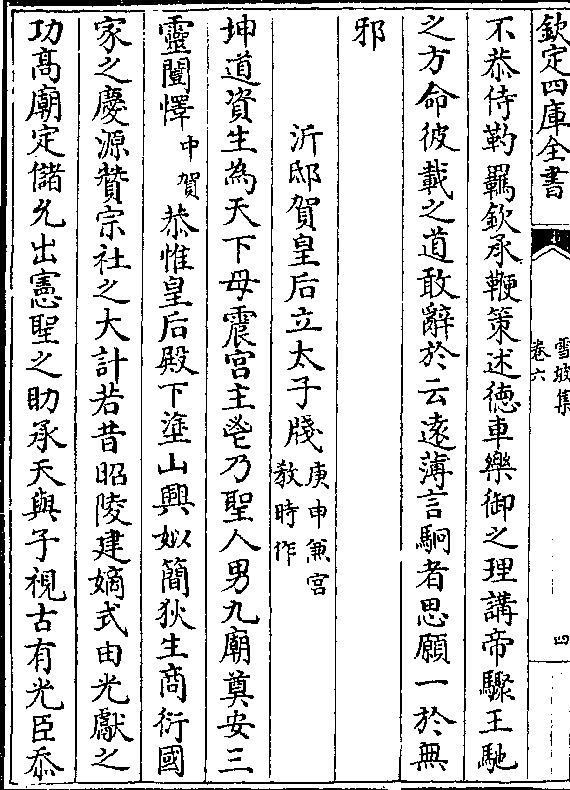 欽定四庫全書
雪坡集
卷六
四
不恭侍勒羈欽承鞭策述徳車樂御之理講帝驟王馳
之方命彼載之道敢辭於云遠薄言駉者思願一於無
邪
沂邸賀皇后立太子牋庚申兼宫
教時作
坤道資生為天下母震宫主鬯乃聖人男九廟奠安三
靈闓懌中賀恭惟皇后殿下塗山興姒簡狄生商衍國
家之慶源贊宗社之大計若昔昭陵建嫡式由光獻之
功髙廟定儲允出憲聖之助承天與子視古有光臣忝